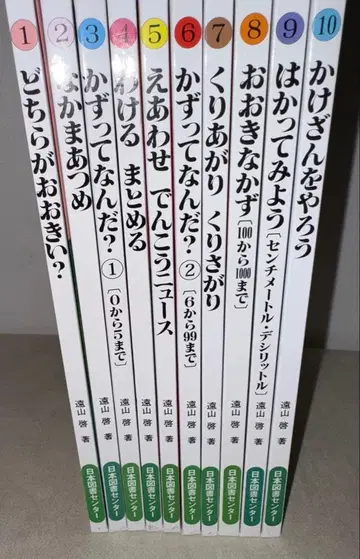 1
どちらがおおきい?
遠山 啓 著
日本図書センター
2
なかまあつめ
遠山 啓 著
日本図書センター
3
かずってなんだ? ① [0から5まで]
遠山 啓 著
日本図書センター
4
わける まとめる
遠山 啓 著
日本図書センター
5
えあわせ でんこうニュース
遠山 啓 著
日本図書センター
6
かずってなんだ? ② [6から99まで]
遠山 啓 著
日本図書センター
7
くりあがり くりさがり
遠山 啓 著
日本図書センター
8
おおきなかず [100から1000まで]
遠山 啓 著
日本図書センター
9
はかってみよう [センチメートル・デシリットル]
遠山 啓 著
日本図書センター
10
かけざんをやろう
遠山 啓 著
日本図書センター